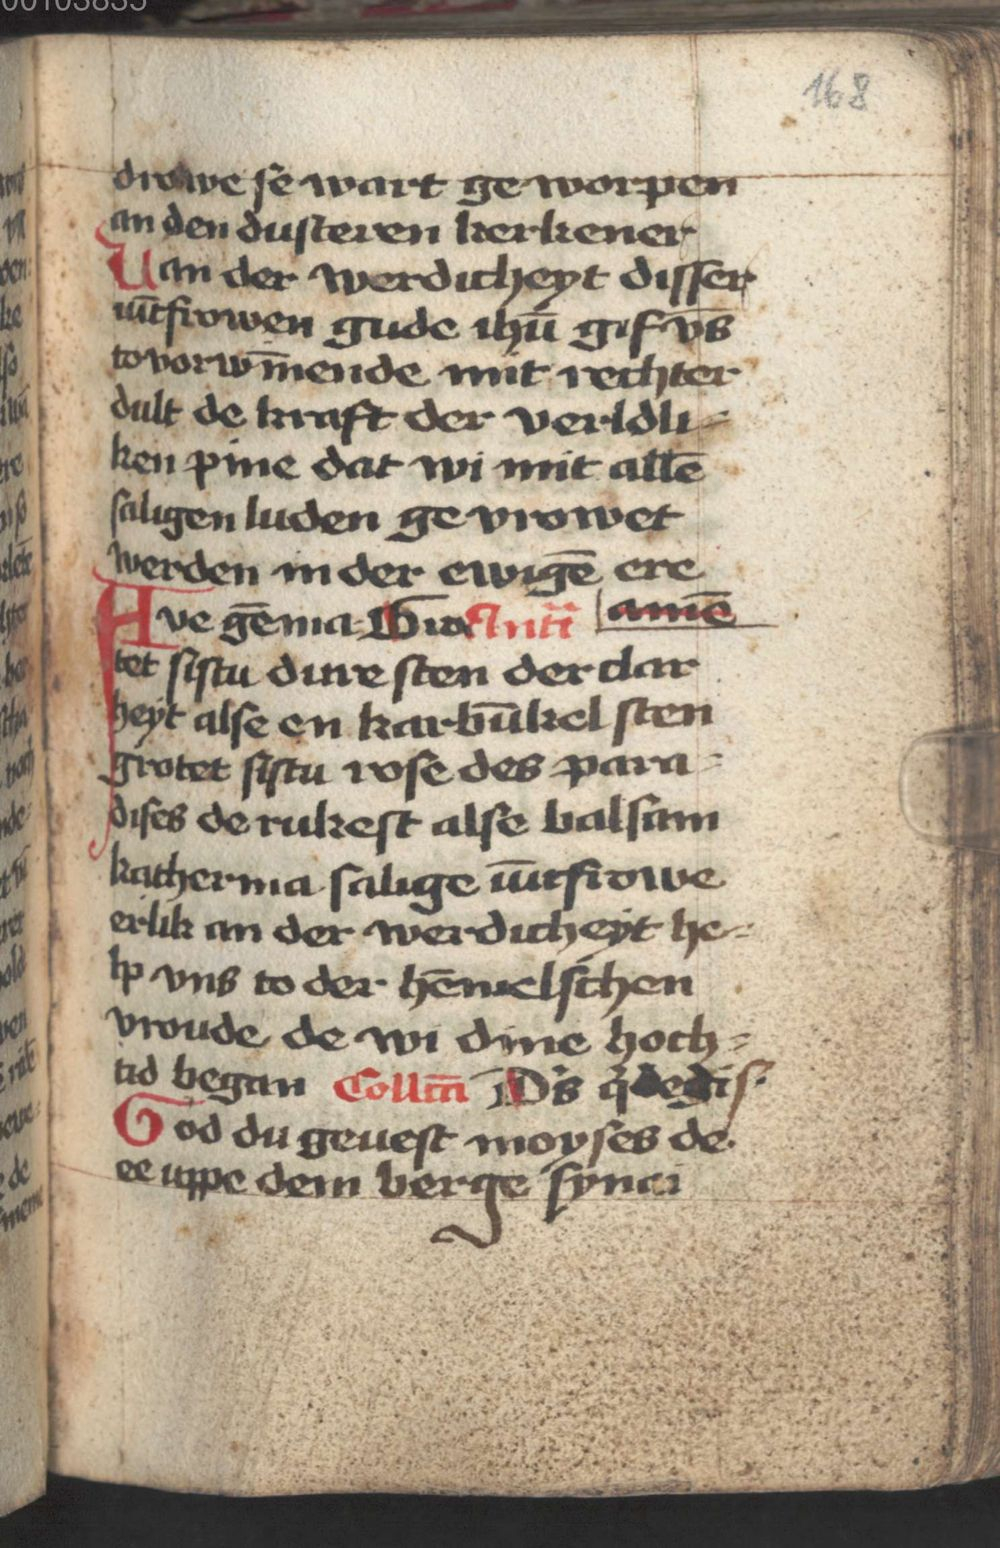 168
drowe se wart geworpen
an den dusteren kerkener
Uan der werdicheyt disser
iūcfrowen gude ihū gif vn̄s
to vorwīnende mit rechter
dult de kraft der verldli-
ken pine dat wi mit allē
saligen luden gevrowet
werden in der ewigē ere
Ave gēma Gro Antā amē
tet sistu dure sten der clar
heyt alse en karbūkel sten
grotet sistu rose des para-
dises de rukest alse balsam
katherina salige iūcfrowe
erlik an der werdicheyt he-
lp vns to der hēmelschen
vroude de wi dine hoch-
tid began Collcā D's q̄ dedis
God du gevest moyses de
ee uppe dem berge synai